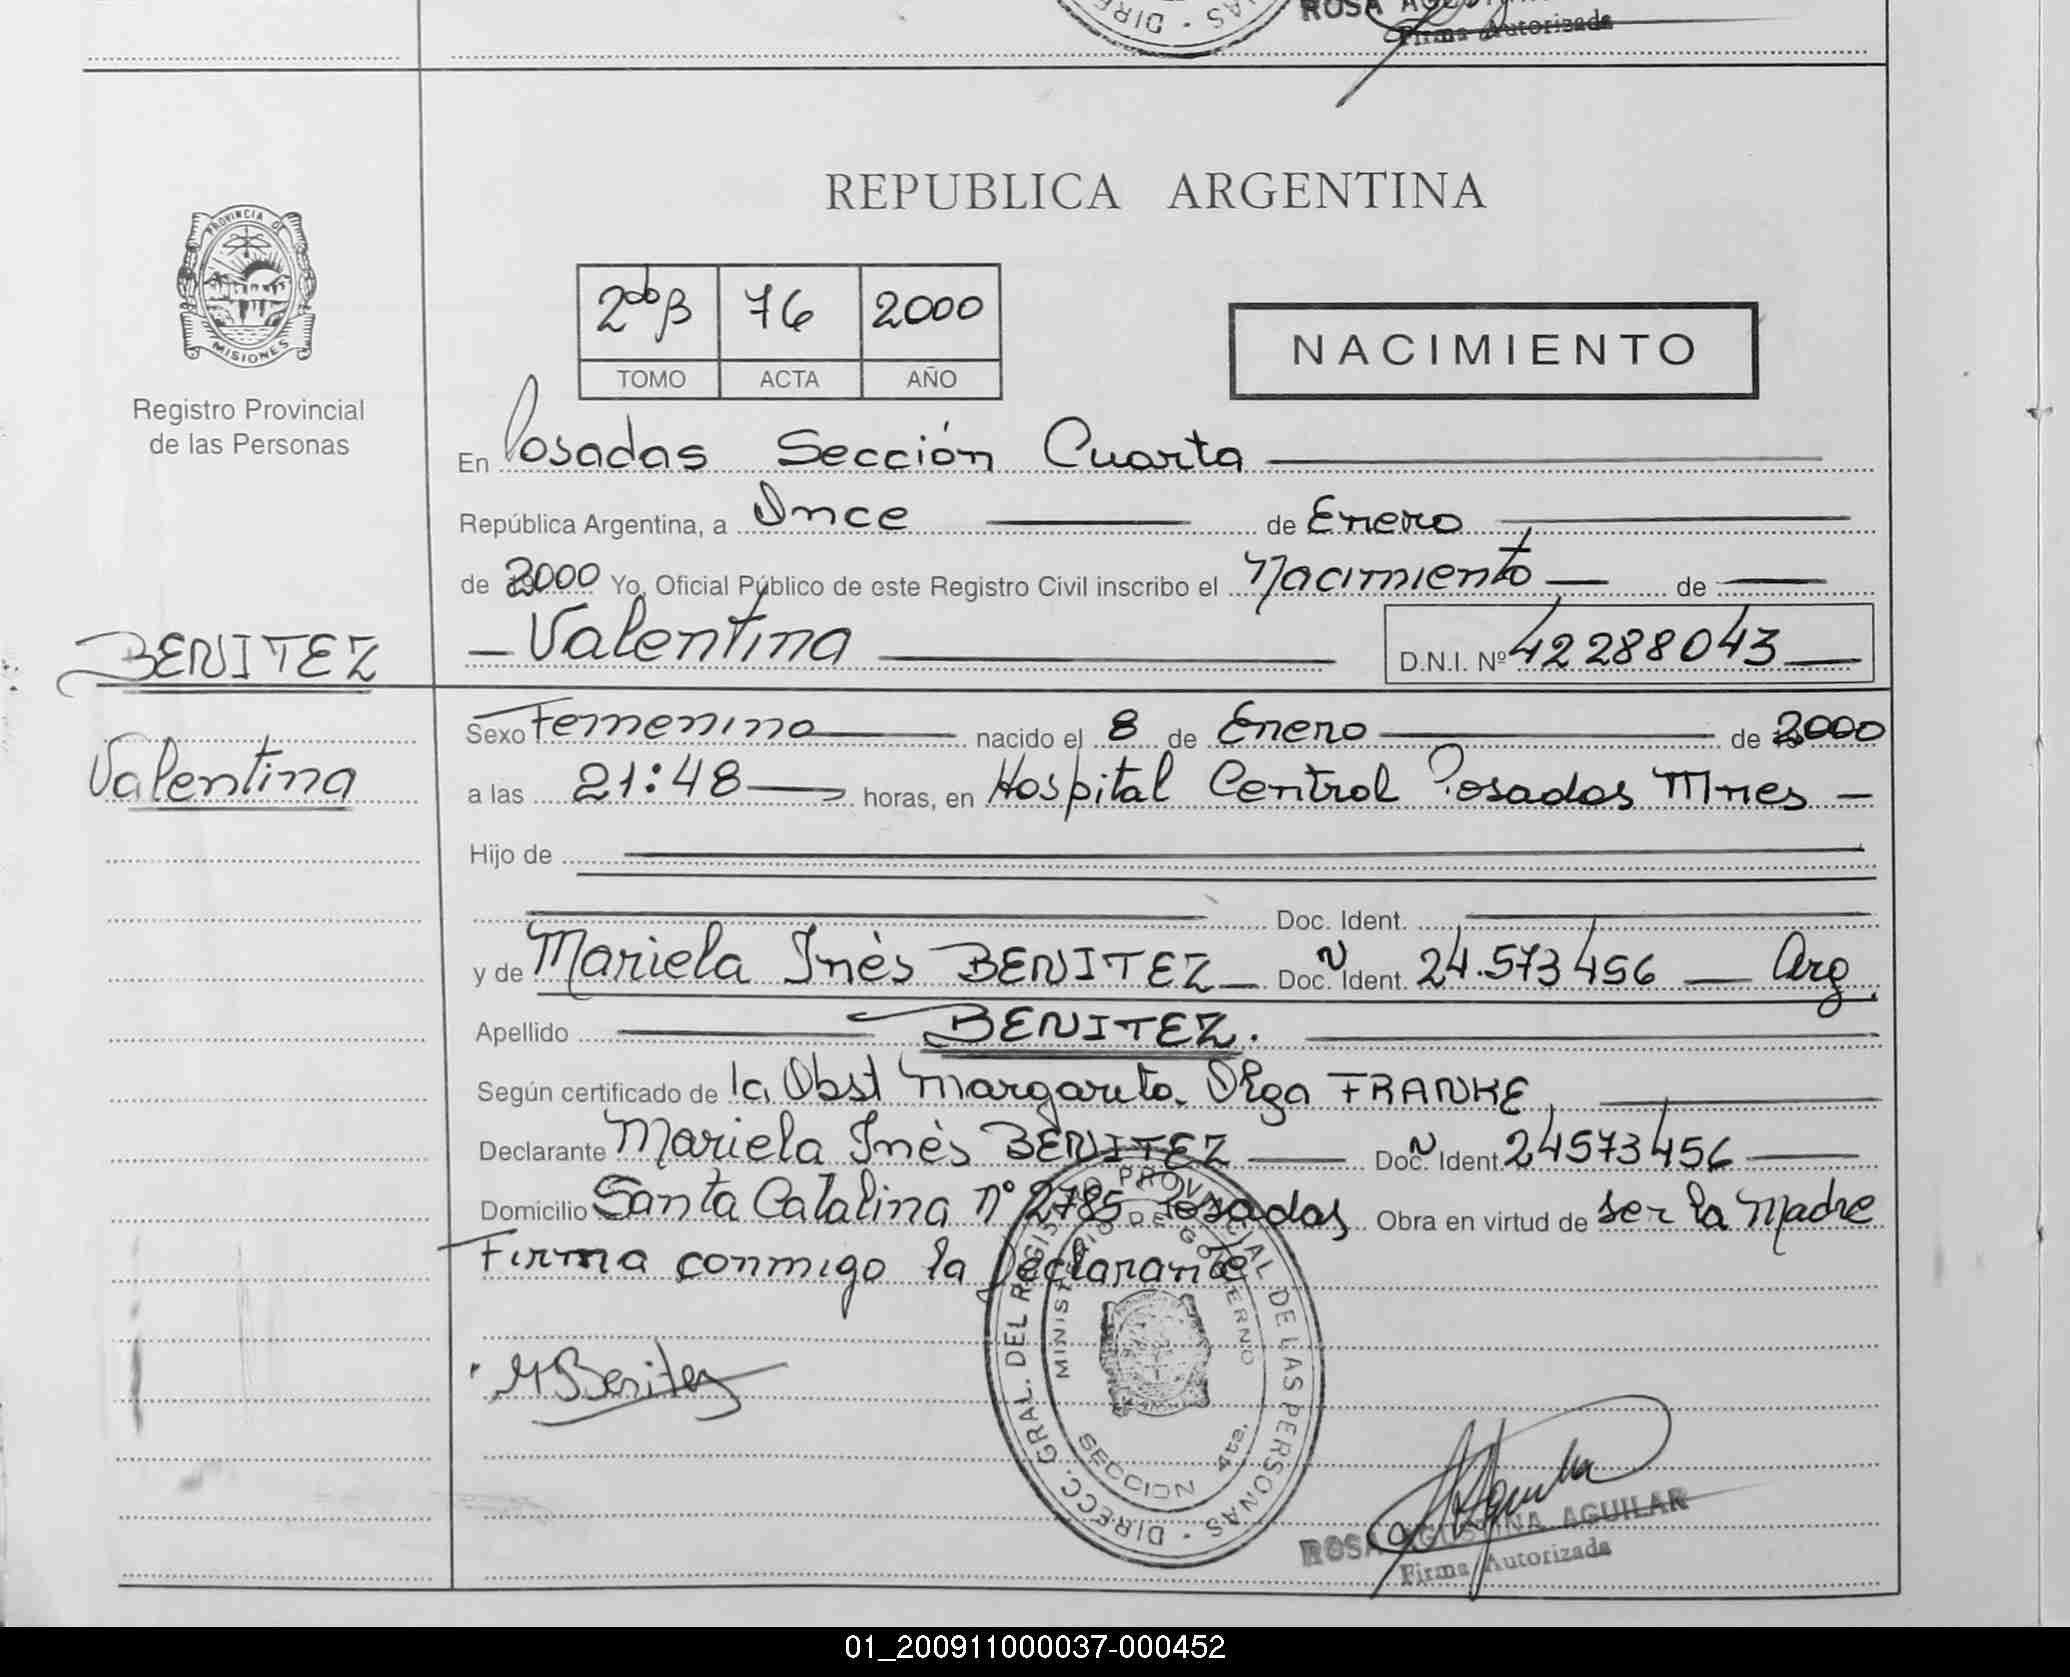 ROSA
Firma Autorizada
REPUBLICA ARGENTINA
PROVINCIA DE
MISIONES
Registro Provincial
de las Personas
2do β 76 2000
TOMO ACTA AÑO
NACIMIENTO
En Posadas Sección Cuarta
República Argentina, a Once de Enero
de 2000 Yo, Oficial Público de este Registro Civil inscribo el Nacimiento de
Valentina D.N.I. Nº 42288043
BENITEZ
Valentina
Sexo Femenino nacido el 8 de Enero de 2000
a las 21:48 horas, en Hospital Central Posadas Mnes
Hijo de
Doc. Ident.
y de Mariela Inés BENITEZ Doc. Ident. 24.573456 Arg.
Apellido BENITEZ.
Según certificado de la Obst Margarita Olga FRANKE
Declarante Mariela Inés BENITEZ Doc. Ident 24573456
Domicilio Santa Catalina Nº 2785 Posadas Obra en virtud de ser la Madre
Firma conmigo la Declarante
DIRECC. GRAL. DEL REGISTRO PROVINCIAL DE LAS PERSONAS
MINISTERIO DE GOBIERNO
SECCION 4ta.
M Benitez
ROSA AGUSTINA AGUILAR
Firma Autorizada
01_200911000037-000452